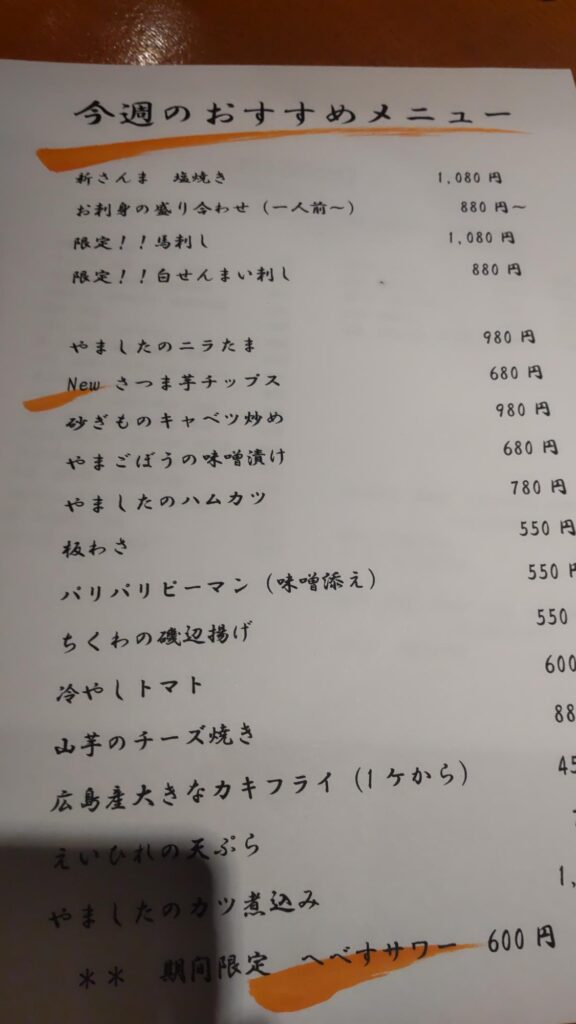 今週のおすすめメニュー
新さんま 塩焼き 1,080円
お刺身の盛り合わせ（一人前～） 880円～
限定！！馬刺し 1,080円
限定！！白せんまい刺し 880円
やましたのニラたま 980円
New さつま芋チップス 680円
砂ぎものキャベツ炒め 980円
やまごぼうの味噌漬け 680円
やましたのハムカツ 780円
板わさ 550円
パリパリピーマン（味噌添え） 550円
ちくわの磯辺揚げ 550
冷やしトマト 600
山芋のチーズ焼き 88
広島産大きなカキフライ（1ケから） 45
えいひれの天ぷら
やましたのカツ煮込み 1,
＊＊ 期間限定 へべすサワー 600円